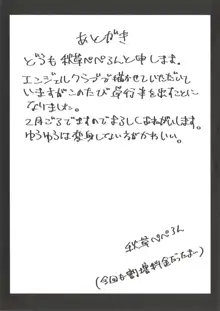 あとがき
どうも秋草ぺぺろんと申します。
エンジェルクラブで描かせていただいて
いますがこのたび単行本を出すことに
なりました。
2月ごろですのでよろしくお願いします。
ゆろゆろは変身しない方がかわいい。
秋草ぺぺろん
(今回も割増料金だったよー)